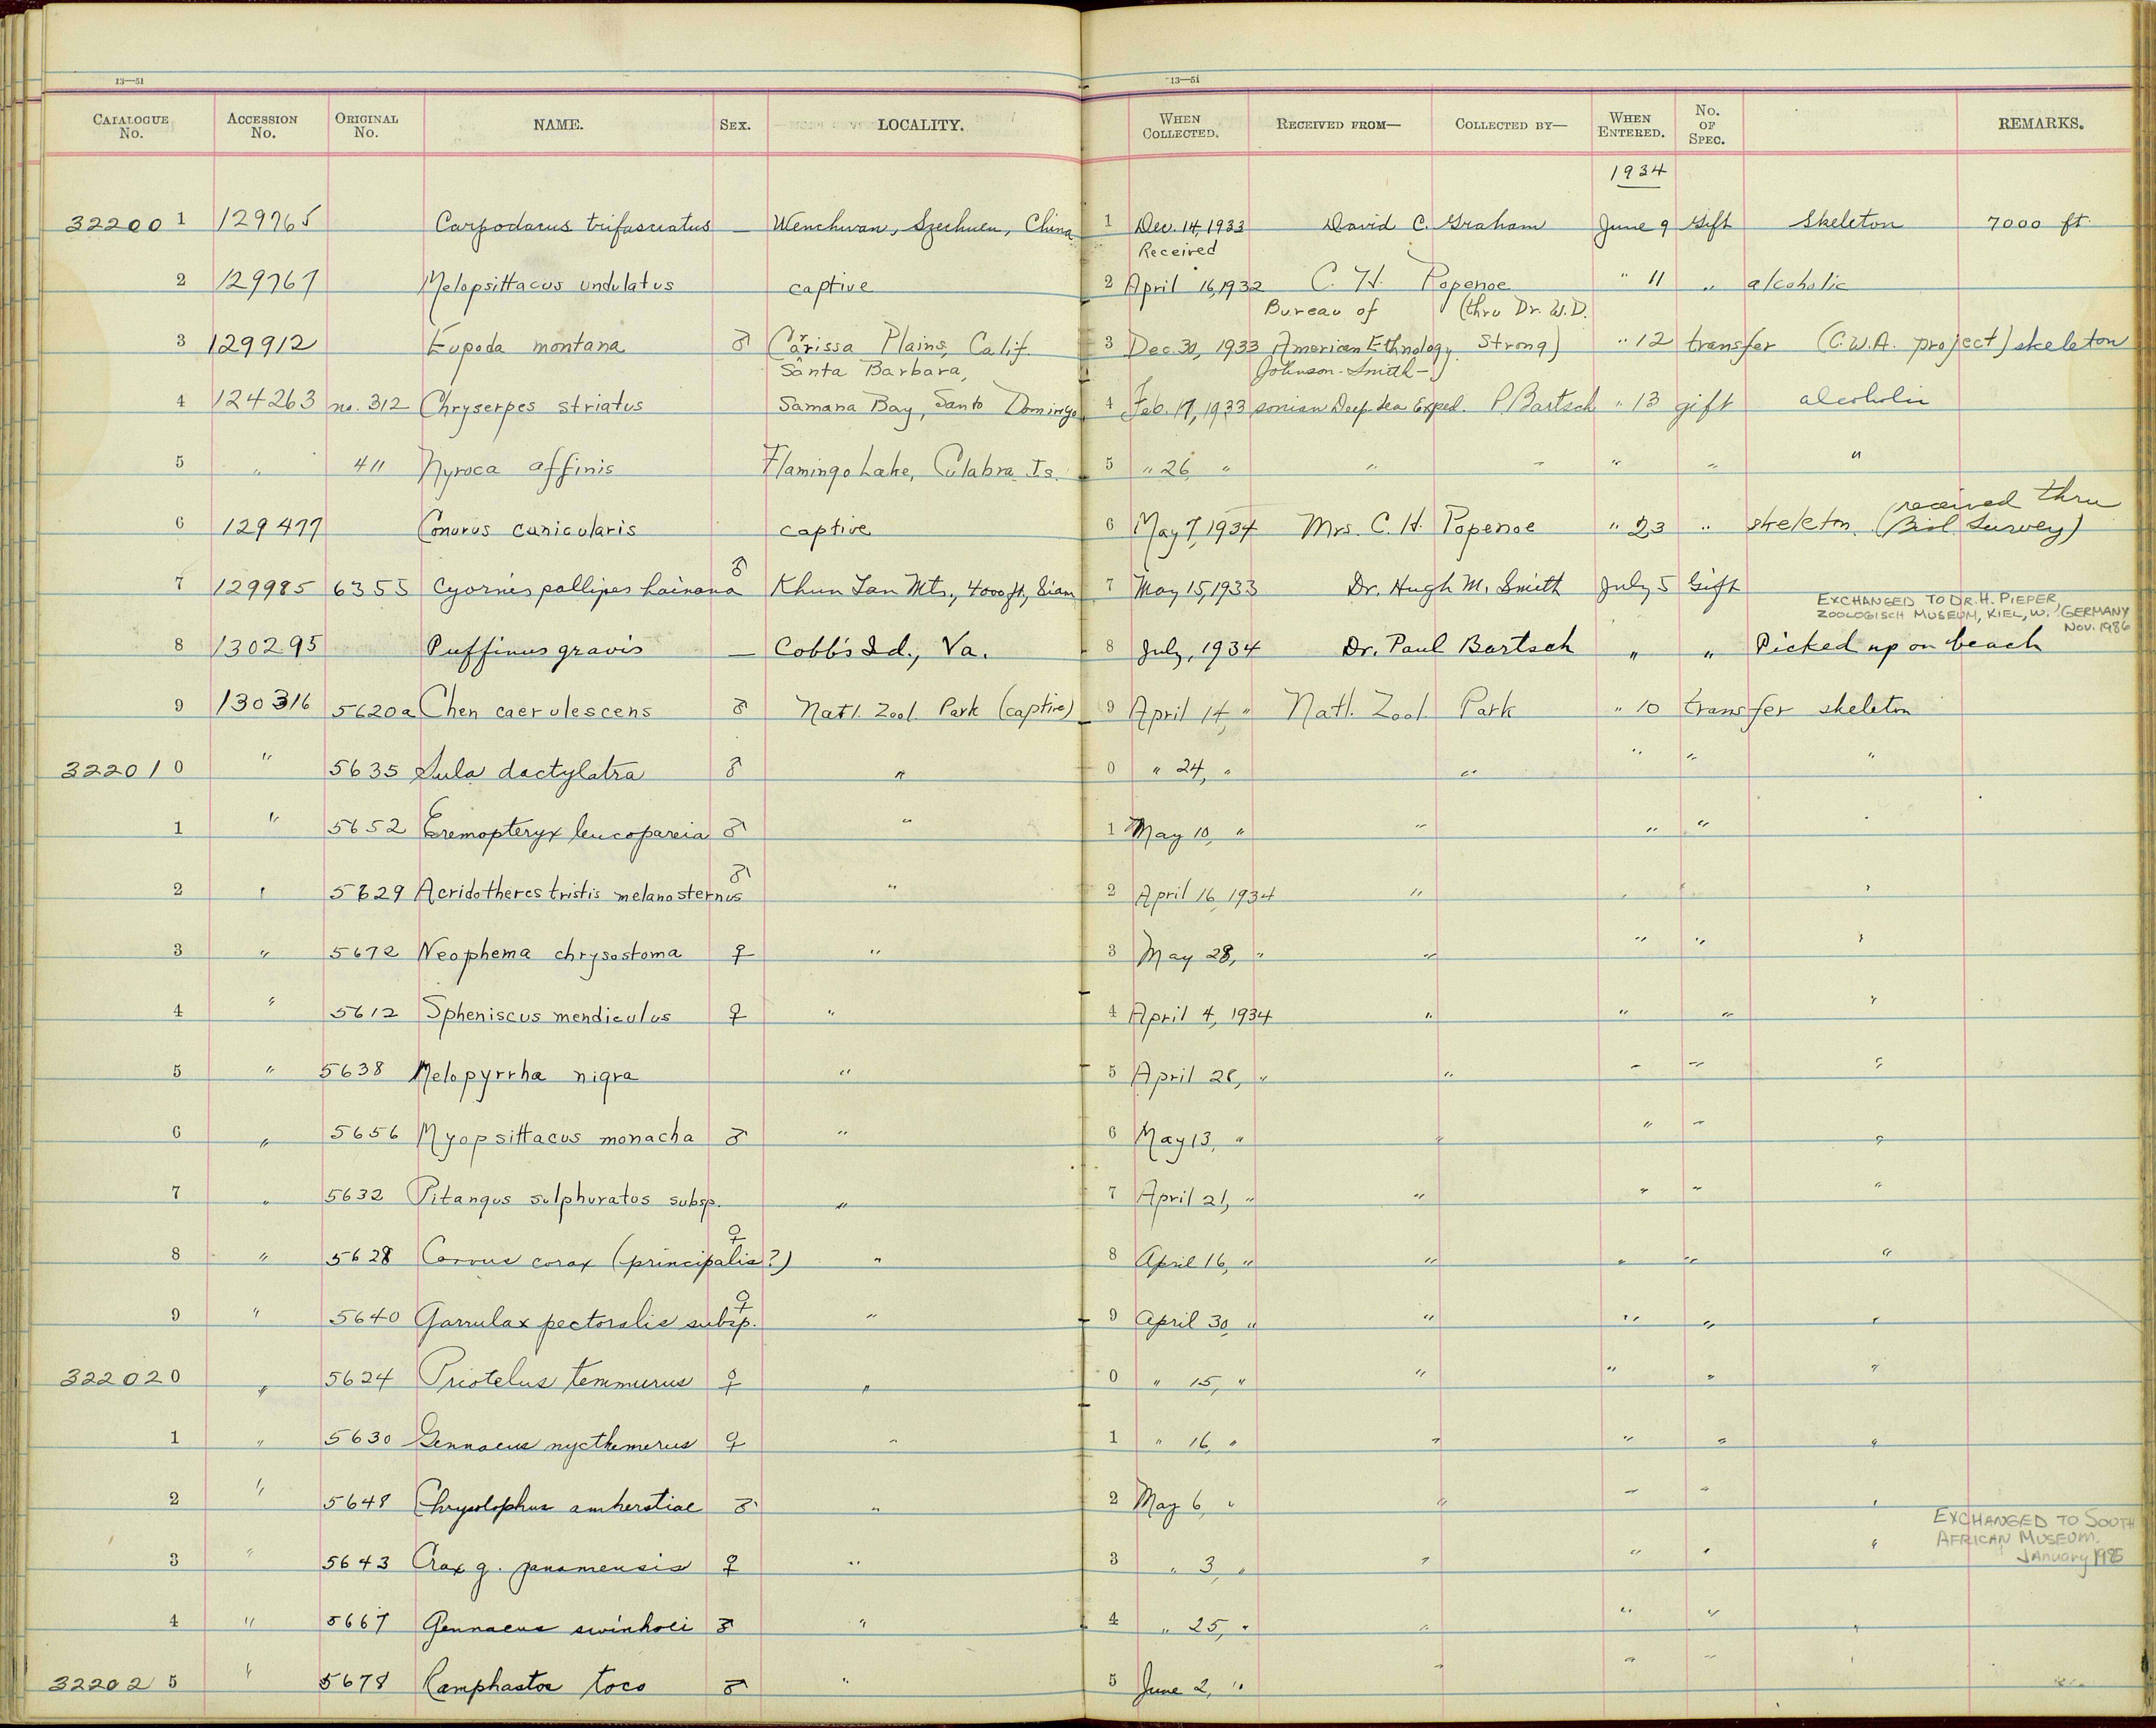 13—51 13—51
CATALOGUE No. ACCESSION No. ORIGINAL No. NAME. SEX. LOCALITY. WHEN COLLECTED. RECEIVED FROM— COLLECTED BY— WHEN ENTERED. No. OF SPEC. REMARKS.
1934
32200 1 129765 Carpodacus trifasciatus — Wenchwan, Szechuen, China 1 Dec. 14, 1933 David C. Graham June 9 Gift Skeleton 7000 ft.
Received
2 129767 Melopsittacus undulatus captive 2 April 16, 1932 C. H. Popenoe " 11 " alcoholic
Bureau of (thru Dr. W.D.
3 129912 Eupoda montana ♂ Carissa Plains, Calif. 3 Dec. 30, 1933 American Ethnology Strong) " 12 transfer (C.W.A. project) skeleton
Santa Barbara, Johnson-Smith-
4 124263 no. 312 Chryserpes striatus Samana Bay, Santo Domingo 4 Feb. 17, 1933 sonian Deep Sea Exped. P. Bartsch " 13 gift alcoholic
5 " 411 Nyroca affinis Flamingo Lake, Culabra Is. 5 " 26, " " " " " "
received thru
6 129477 Conurus canicularis captive 6 May 7, 1934 Mrs. C. H. Popenoe " 23 " skeleton. (Biol. Survey)
7 129985 6355 Cyornis pallipes hainana ♂ Khun Tan Mts., 4000 ft, Siam 7 May 15, 1933 Dr. Hugh M. Smith July 5 Gift
EXCHANGED TO DR. H. PIEPER
ZOOLOGISCH MUSEUM, KIEL, W. GERMANY
NOV. 1986
8 130295 Puffinus gravis — Cobb's Id., Va. 8 July, 1934 Dr. Paul Bartsch " " Picked up on beach
9 130316 5620a Chen caerulescens ♂ Natl. Zool. Park (captive) 9 April 14, " Natl. Zool. Park " 10 transfer skeleton
32201 0 " 5635 Sula dactylatra ♂ " 0 " 24, " " " " "
1 " 5652 Eremopteryx leucopareia ♂ " 1 May 10, " " " " "
2 " 5629 Acridotheres tristis melanosternus ♂ " 2 April 16, 1934 " " " "
3 " 5672 Neophema chrysostoma ♀ " 3 May 28, " " " " "
4 " 5612 Spheniscus mendiculus ♀ " 4 April 4, 1934 " " " "
5 " 5638 Melopyrrha nigra " 5 April 26, " " " " "
6 " 5656 Myopsittacus monacha ♂ " 6 May 13, " " " " "
7 " 5632 Pitangus sulphuratos subsp. " 7 April 21, " " " " "
8 " 5628 Corvus corax (principalis?) ♀ " 8 April 16, " " " " "
9 " 5640 Garrulax pectoralis subsp. ♀ " 9 April 30, " " " " "
32202 0 " 5624 Priotelus temnurus ♀ " 0 " 15, " " " " "
1 " 5630 Gennaeus nycthemerus ♀ " 1 " 16, " " " " "
2 " 5648 Chrysolophus amherstiae ♂ " 2 May 6, " " " " "
EXCHANGED TO SOUTH
AFRICAN MUSEUM.
JANUARY 1985
3 " 5643 Crax g. panamensis ♀ " 3 " 3, " " " " "
4 " 5667 Gennaeus swinhoei ♂ " 4 " 25, " " " " "
32202 5 " 5678 Ramphastos toco ♂ " 5 June 2, " " " " "